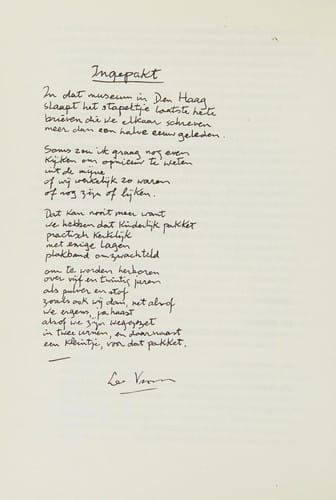 Ingepakt
In dat museum in Den Haag
slaapt het stapeltje laatste hete
brieven die we elkaar schreven
meer dan een halve eeuw geleden.
Soms zou ik graag nog even
kijken om opnieuw te weten
uit de mijne
of wij werkelijk zo waren
of nog zijn of lijken.
Dat kan nooit meer want
we hebben dat kinderlijk pakket
practisch kerkelijk
met enige lagen
plakband omzwachteld
om te worden herboren
over vijf en twintig jaren
als pulver en stof
zoals ook wij dan, net alsof
we ergens, ja haast
alsof we zijn weggezet
in twee urnen, en daarnaast
een kleintje, voor dat pakket.
Leo Vroman